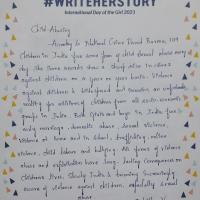 #WRITEHERSTORY
International Day of the Girl 2023
Child Abusing
According to National Crime Record Bureau, 109
children in India face some form of child sexual abuse every
day. The same records show a sharp rise in crimes
against children on a year on year basis. Violence
against children is widespread and remains an
reality for millions of children from all socio-economic
groups in India. Both girls and boys in India face
early marriage, domestic abuse, sexual violence,
violence at home and in school, trafficking, online
violence, child labour and bullying. All forms of violence
abuse and exploitation have long-lasting consequences on
children's lives. Slowly India is becoming increasingly
violence against children, especially sexual
abuse